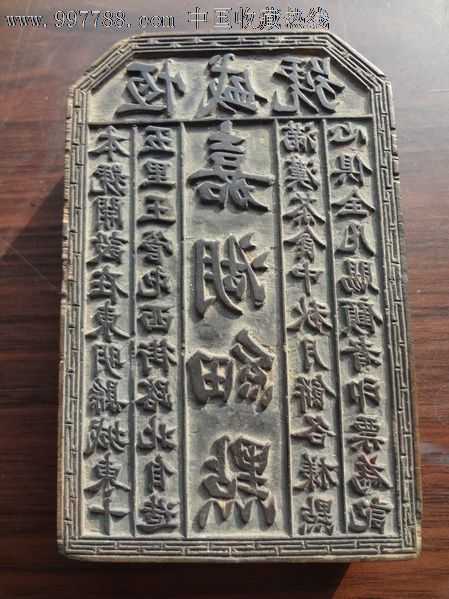 www.997788.com 中国收藏热线
恆盛號
本號開設在東明縣城東十
五里王西街路北自造
嘉湖細點
滿漢茶食中秋月餅各樣點
心俱全凡賜顧者印票為記